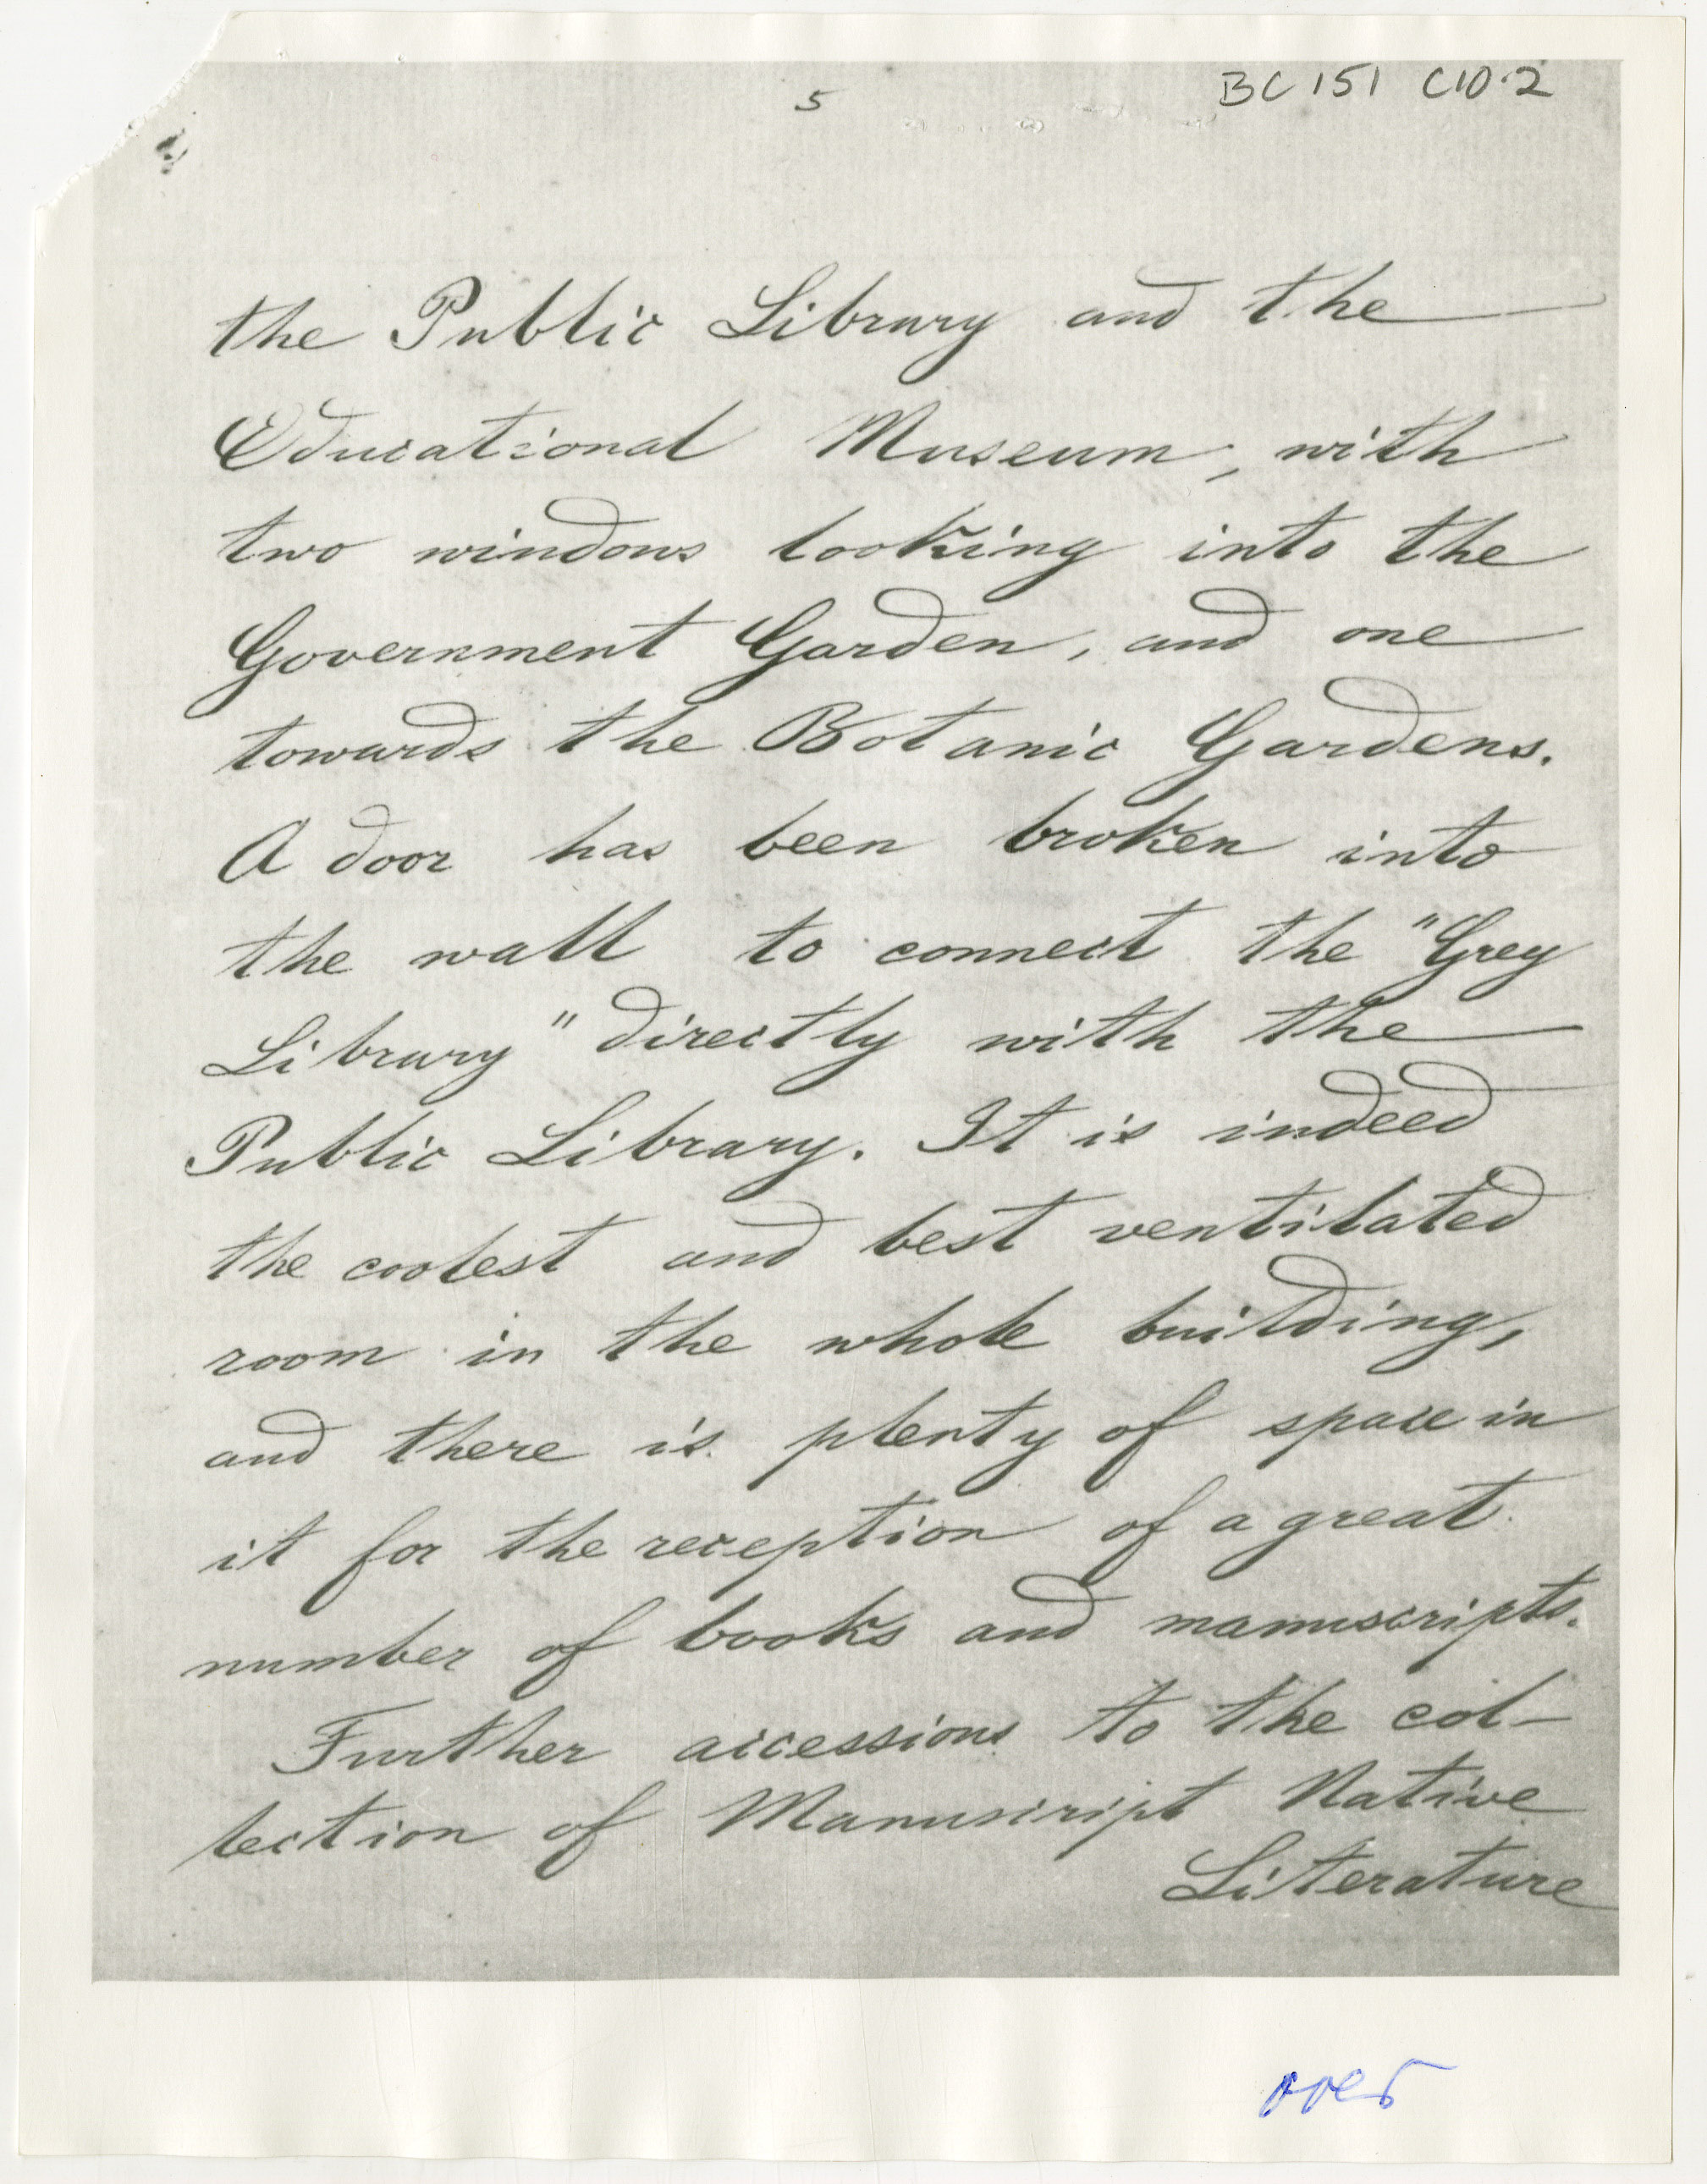 5
BC 151 C10.2
the Public Library and the
Educational Museum, with
two windows looking into the
Government Garden, and one
towards the Botanic Gardens.
A door has been broken into
the wall to connect the "Grey
Library" directly with the
Public Library. It is indeed
the coolest and best ventilated
room in the whole building,
and there is plenty of space in
it for the reception of a great
number of books and manuscripts.
Further accessions to the col-
lection of Manuscript Native
Literature
over